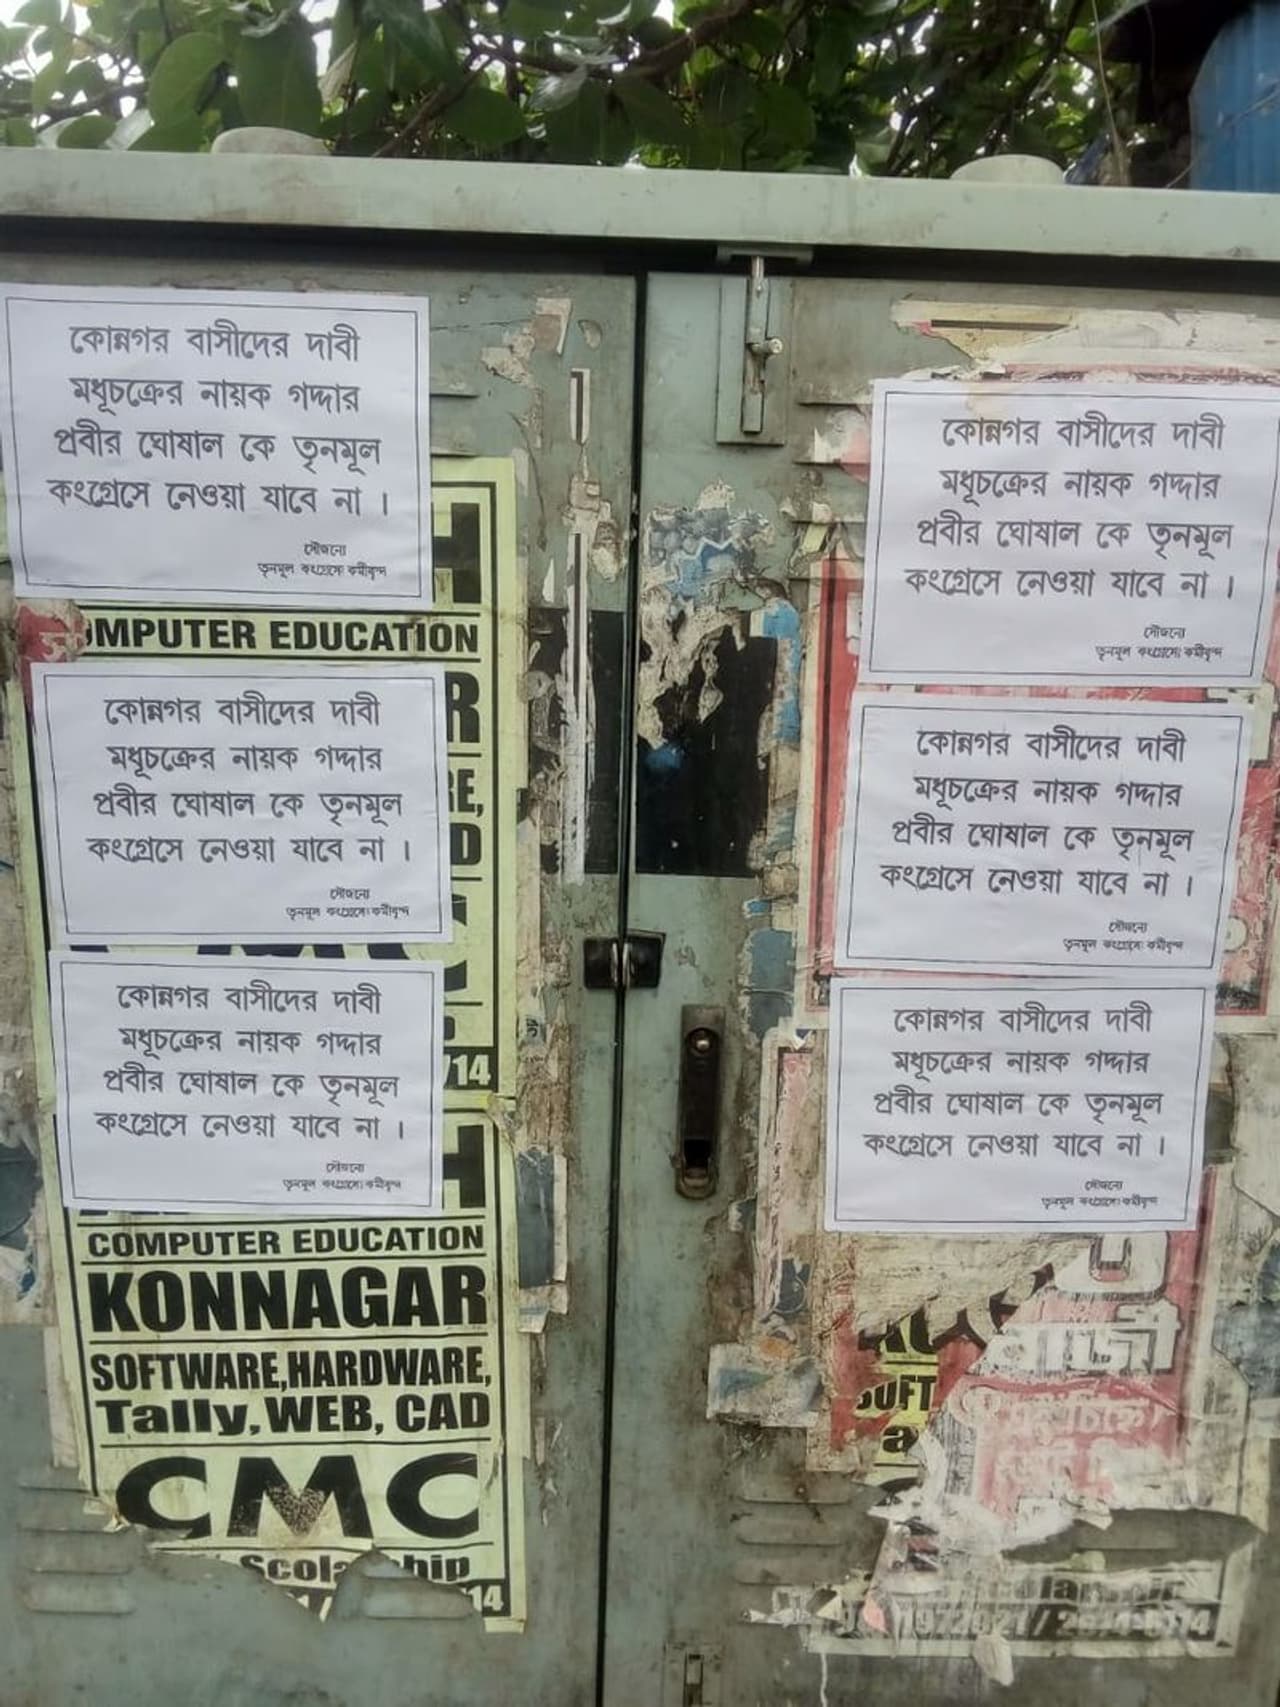 কোন্নগর বাসীদের দাবী
মধূচক্রের নায়ক গদ্দার
প্রবীর ঘোষাল কে তৃনমূল
কংগ্রেসে নেওয়া যাবে না ।
সৌজন্যে
তৃনমূল কংগ্রেসে কর্মীবৃন্দ
H
COMPUTER EDUCATION
কোন্নগর বাসীদের দাবী
মধূচক্রের নায়ক গদ্দার
প্রবীর ঘোষাল কে তৃনমূল
কংগ্রেসে নেওয়া যাবে না ।
সৌজন্যে
তৃনমূল কংগ্রেসে কর্মীবৃন্দ
R
RE,
D
14
কোন্নগর বাসীদের দাবী
মধূচক্রের নায়ক গদ্দার
প্রবীর ঘোষাল কে তৃনমূল
কংগ্রেসে নেওয়া যাবে না ।
সৌজন্যে
তৃনমূল কংগ্রেসে কর্মীবৃন্দ
H
COMPUTER EDUCATION
KONNAGAR
SOFTWARE,HARDWARE,
Tally,WEB, CAD
CMC
14
কোন্নগর বাসীদের দাবী
মধূচক্রের নায়ক গদ্দার
প্রবীর ঘোষাল কে তৃনমূল
কংগ্রেসে নেওয়া যাবে না ।
সৌজন্যে
তৃনমূল কংগ্রেসে কর্মীবৃন্দ
কোন্নগর বাসীদের দাবী
মধূচক্রের নায়ক গদ্দার
প্রবীর ঘোষাল কে তৃনমূল
কংগ্রেসে নেওয়া যাবে না ।
সৌজন্যে
তৃনমূল কংগ্রেসে কর্মীবৃন্দ
কোন্নগর বাসীদের দাবী
মধূচক্রের নায়ক গদ্দার
প্রবীর ঘোষাল কে তৃনমূল
কংগ্রেসে নেওয়া যাবে না ।
সৌজন্যে
তৃনমূল কংগ্রেসে কর্মীবৃন্দ
বাজী